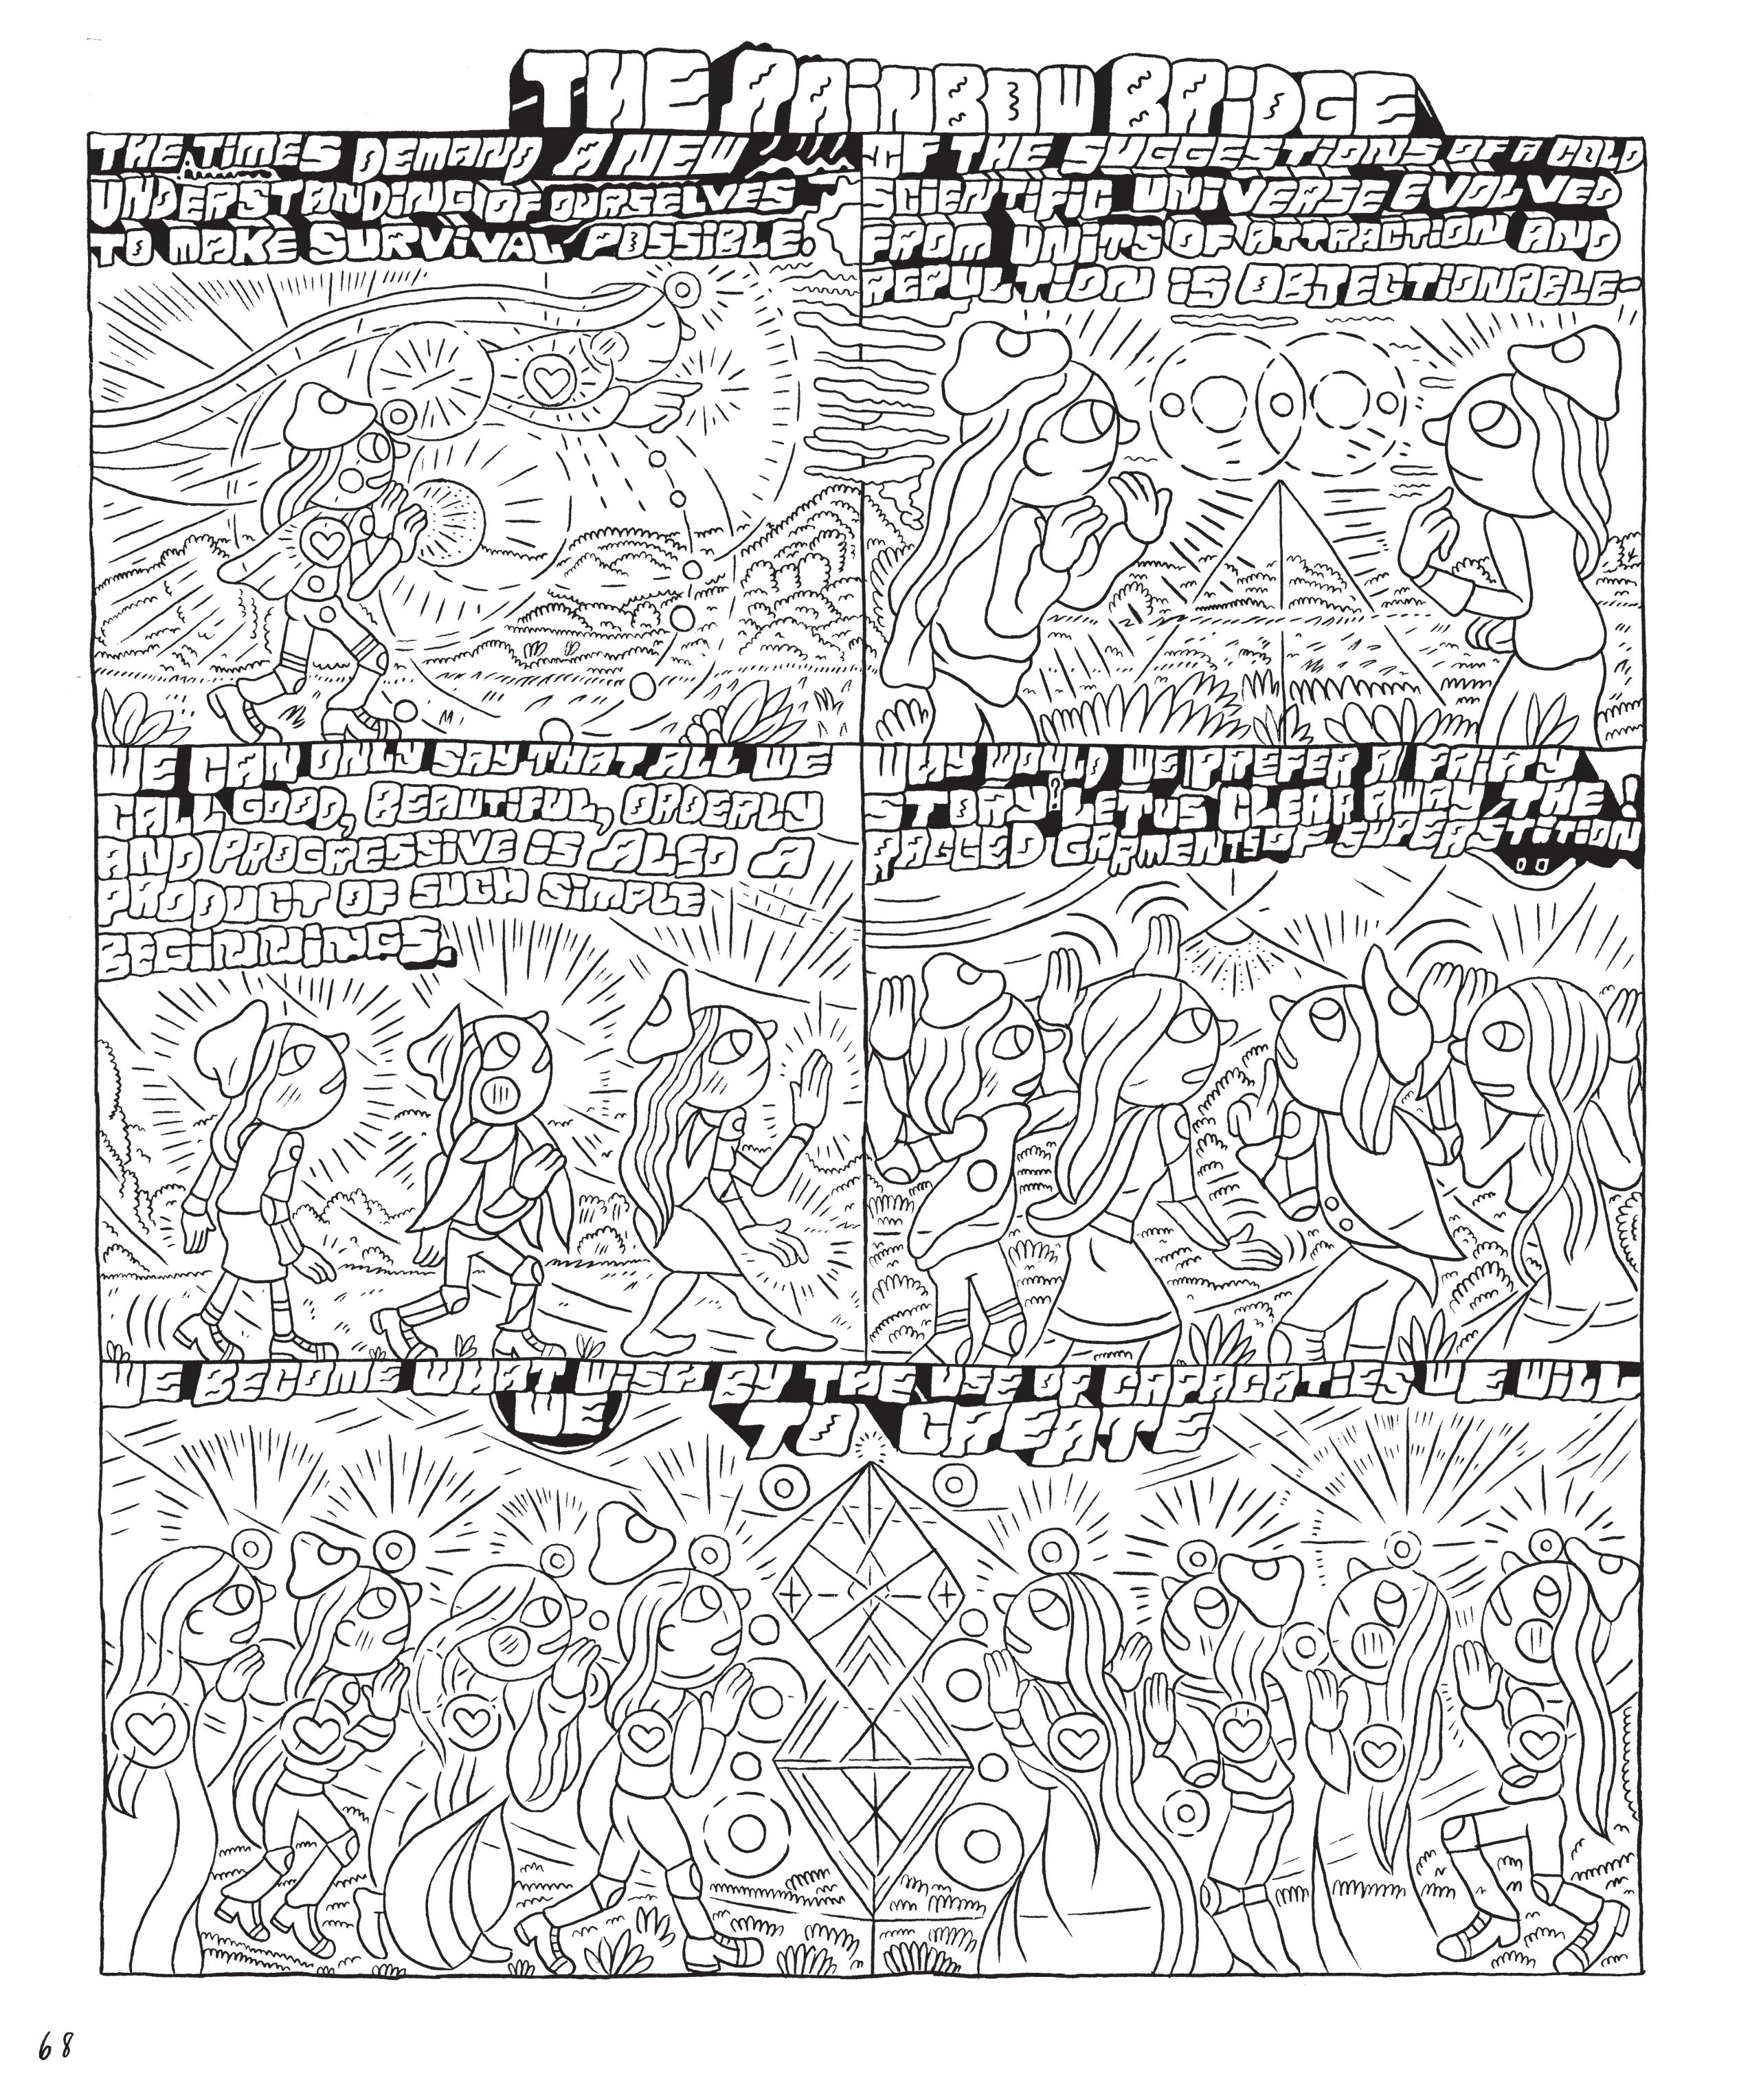 THE RAINBOW BRIDGE
THE TIMES DEMAND A NEW
UNDERSTANDING OF OURSELVES
TO MAKE SURVIVAL POSSIBLE.
IF THE SUGGESTIONS OF A COLD
SCIENTIFIC UNIVERSE EVOLVED
FROM UNITS OF ATTRACTION AND
REPULTION IS OBJECTIONABLE-
WE CAN ONLY SAY THAT ALL WE
CALL GOOD, BEAUTIFUL, ORDERLY
AND PROGRESSIVE IS ALSO A
PRODUCT OF SUCH SIMPLE
BEGINNINGS.
WHY WOULD WE PREFER A FAIRY
STORY! LET US CLEAR AWAY THE!
RAGGED GARMENTS OF SUPERSTITION
WE BECOME WHAT WISH BY THE USE OF CAPACATIES WE WILL
WE TO CREATE
68